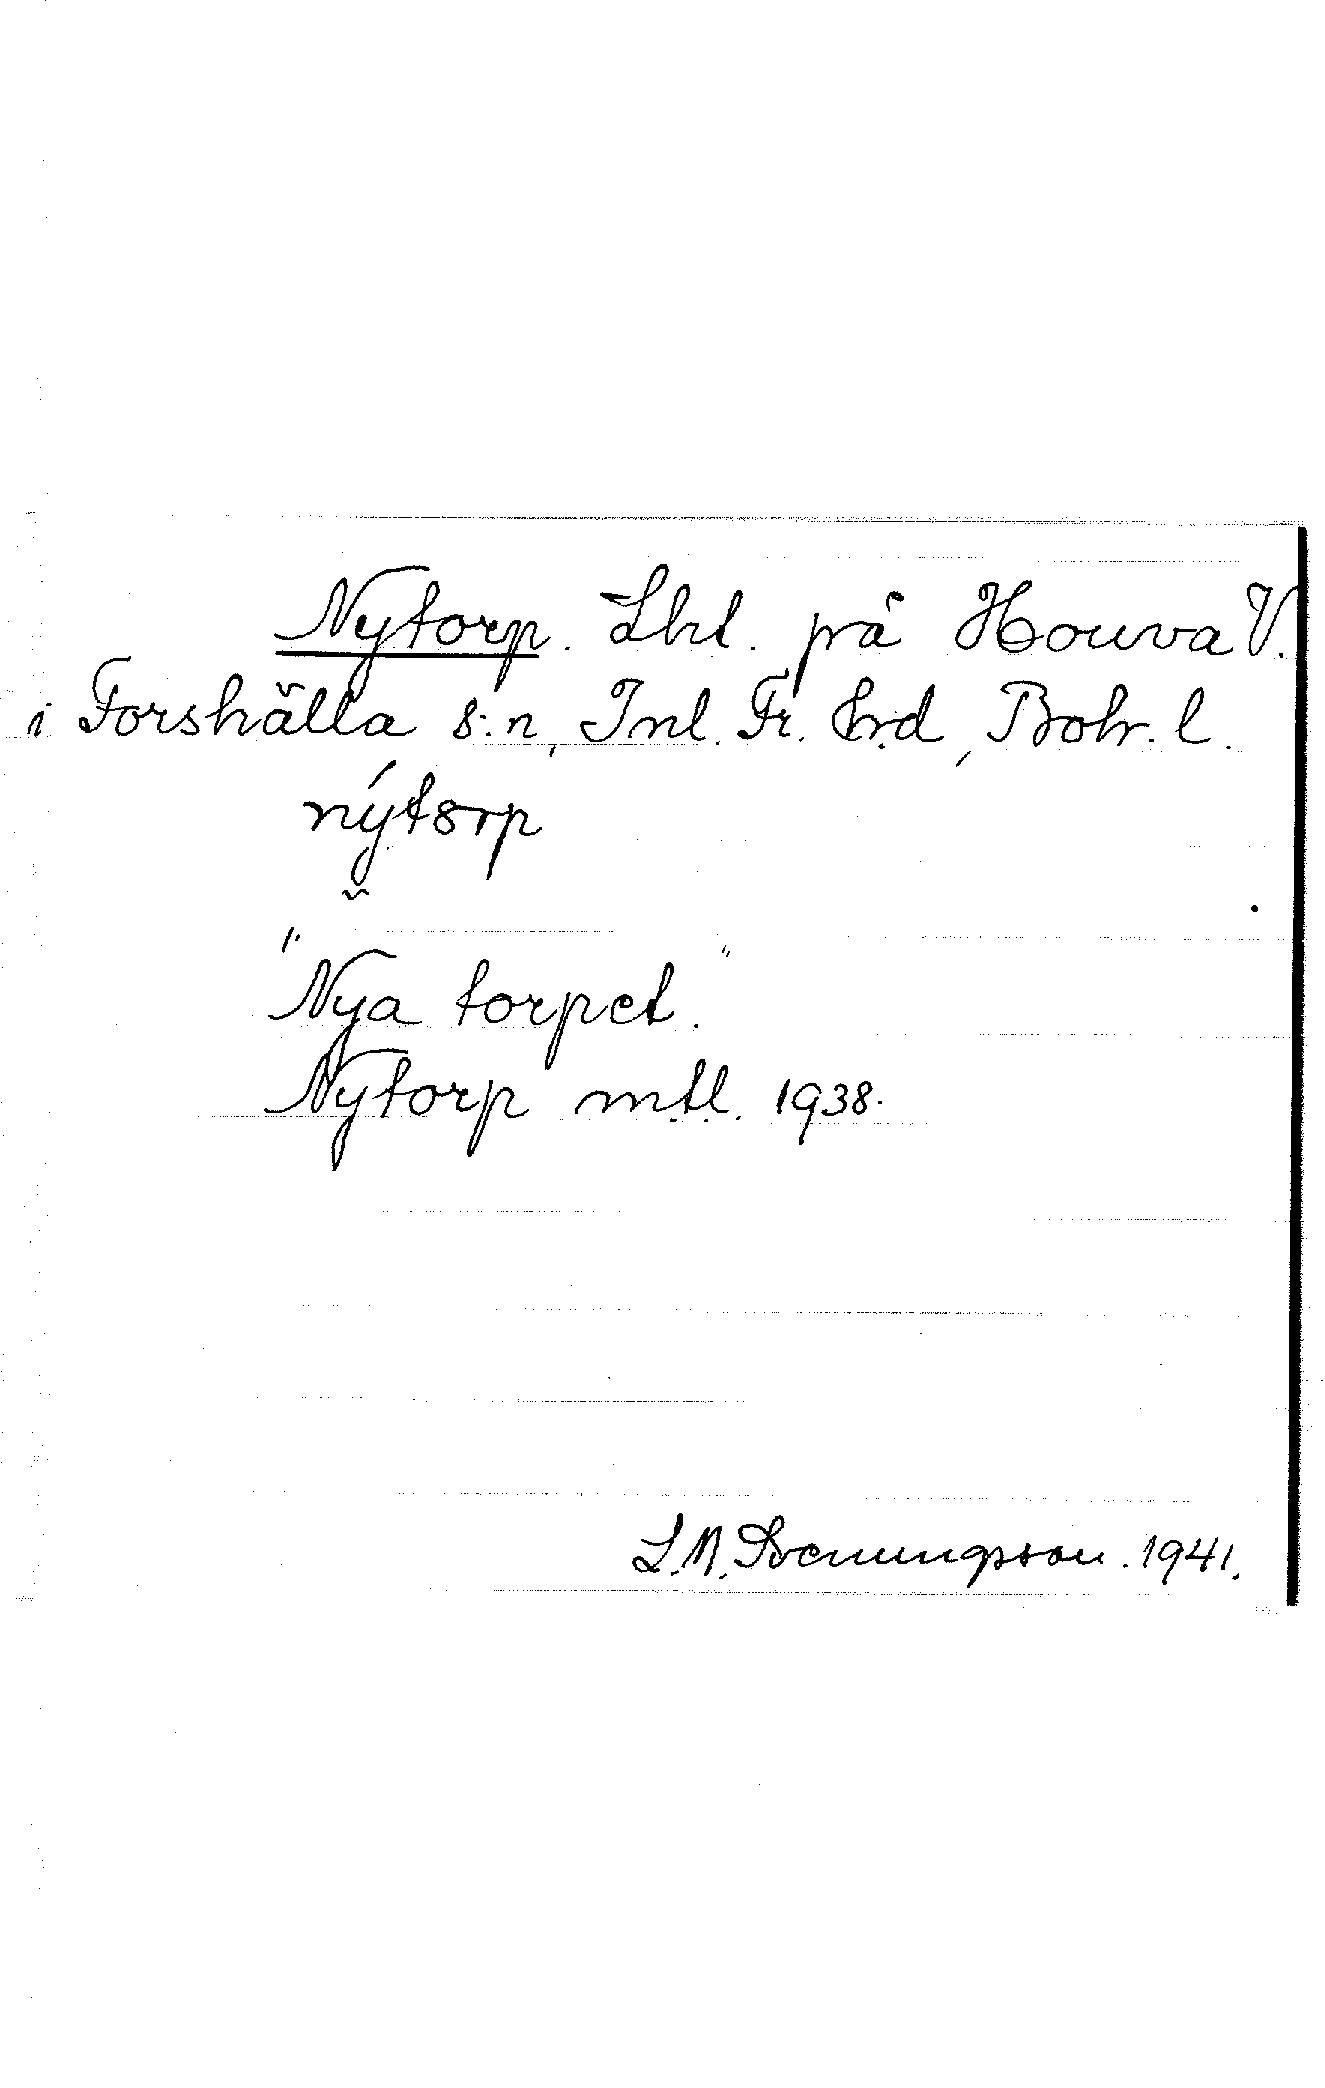 Nytorp. Lht. på Houva V.
i Forshälla s:n, Inl. Fr. hrd, Boh. l.
nýtorp
"Nya torpet."
Nytorp mtl. 1938.
L.M. Svenungsson. 1941.